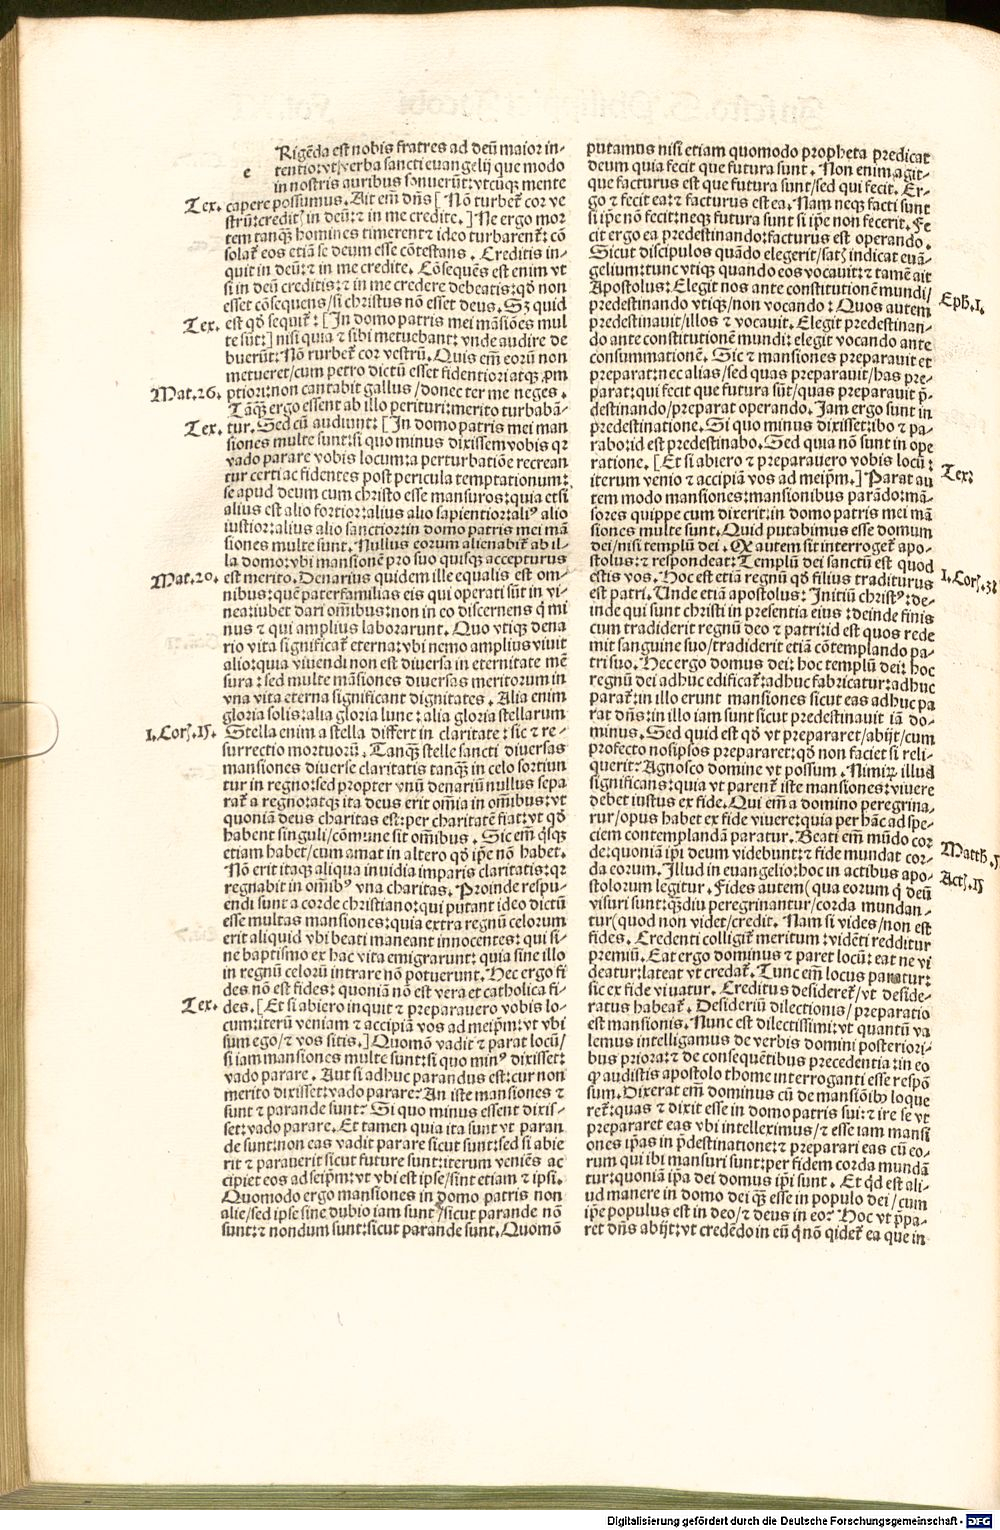 Rigēda est nobis fratres ad deū maior in-
e
tentio: vt verba sancti euangelij que modo
in nostris auribus sonuerūt: vtcūqꝫ mente
Tex. capere possumus. Ait em̄ dn̄s [Nō turbet᷑ cor ve
strū: creditꝭ in deū: ⁊ in me credite.] Ne ergo mor
tem tanqꝫ homines timerent ⁊ ideo turbarent᷑: cō
solat᷑ eos etiā se deum esse cōtestans. Creditis in-
quit in deū: ⁊ in me credite. Cōsequēs est enim vt
si in deū creditis: ⁊ in me credere debeatis: qd̄ non
esset cōsequens/si christus nō esset deus. Sꝫ quid
Tex. est qd̄ sequit᷑: [In domo patris mei māsiōes mul
te sūt:] nisi quia ⁊ sibi metuebant: vnde audire de
buerūt: Nō turbet᷑ cor vestrū. Quis em̄ eorū non
metueret/cum petro dictū esset fidentiori atqꝫ ꝓm
Mat.26. ptiori: non cantabit gallus/donec ter me neges.
Tāqꝫ ergo essent ab illo perituri: merito turbabā-
Tex. tur. Sed cū audiunt: [In domo patris mei man
siones multe sunt: si quo minus dixissem vobis qꝛ
vado parare vobis locum: a perturbatiōe recrean
tur certi ac fidentes post pericula temptationum:
se apud deum cum christo esse mansuros: quia etsi
alius est alio fortior: alius alio sapientior: aliꝰ alio
iustior: alius alio sanctior: in domo patris mei mā
siones multe sunt. Nullus eorum alienabit᷑ ab il-
la domo: vbi mansionē pro suo quisqꝫ accepturus
Mat.20. est merito. Denarius quidem ille equalis est om-
nibus: quē paterfamilias eis qui operati sūt in vi-
nea: iubet dari om̄ibus: non in eo discernens q̇ mi
nus ⁊ qui amplius laborarunt. Quo vtiqꝫ dena
rio vita significat᷑ eterna: vbi nemo amplius viuit
alio: quia viuendi non est diuersa in eternitate mē
sura: sed multe māsiones diuersas meritorum in
vna vita eterna significant dignitates. Alia enim
gloria solis: alia gloria lune: alia gloria stellarum
1.Corꝭ.15. Stella enim a stella differt in claritate: sic ⁊ re-
surrectio mortuorū. Tanqꝫ stelle sancti diuersas
mansiones diuerse claritatis tanqꝫ in celo sortiun
tur in regno: sed propter vnū denariū nullus sepa
rat᷑ a regno: atqꝫ ita deus erit om̄ia in om̄ibus: vt
quoniā deus charitas est: per charitatē fiat: vt qd̄
habent singuli/cōmune sit om̄ibus. Sic em̄ q̇sqꝫ
etiam habet/cum amat in altero qd̄ ip̄e nō habet.
Nō erit itaqꝫ aliqua inuidia imparis claritatis: qꝛ
regnabit in om̄ibꝰ vna charitas. Proinde respu-
endi sunt a corde christiano: qui putant ideo dictū
esse multas mansiones: quia extra regnū celorum
erit aliquid vbi beati maneant innocentes: qui si-
ne baptismo ex hac vita emigrarunt: quia sine illo
in regnū celorū intrare nō potuerunt. Hec ergo fi
des nō est fides: quoniā nō est vera et catholica fi-
Tex. des. [Et si abiero inquit ⁊ preparauero vobis lo-
cum: iterū veniam ⁊ accipiā vos ad meip̄m: vt vbi
sum ego/⁊ vos sitis.] Quomō vadit ⁊ parat locū/
si iam mansiones multe sunt: si quo minꝰ dixisset:
vado parare. Aut si adhuc parandus est: cur non
merito dixisset: vado parare? An iste mansiones ⁊
sunt ⁊ parande sunt? Si quo minus essent dixis-
set: vado parare. Et tamen quia ita sunt vt paran
de sunt: non eas vadit parare sicut sunt: sed si abie
rit ⁊ parauerit sicut future sunt: iterum veniēs ac
cipiet eos ad seip̄m: vt vbi est ipse/sint etiam ⁊ ipsi.
Quomodo ergo mansiones in domo patris non
alie/sed ipse sine dubio iam sunt/sicut parande nō
sunt: ⁊ nondum sunt: sicut parande sunt. Quomō
putamus nisi etiam quomodo propheta predicat
deum quia fecit que futura sunt. Non enim agit-
que facturus est que futura sunt/sed qui fecit. Er-
go ⁊ fecit ea: ⁊ facturus est ea. Nam neqꝫ facti sunt
si ip̄e nō fecit: neqꝫ futura sunt si ip̄e non fecerit. Fe
cit ergo ea predestinando: facturus est operando.
Sicut discipulos quādo elegerit/satꝭ indicat euā-
gelium: tunc vtiqꝫ quando eos vocauit: ⁊ tamē ait
Apostolus: Elegit nos ante constitutionē mundi/ Eph̄.1.
predestinando vtiqꝫ/non vocando: Quos autem
predestinauit/illos ⁊ vocauit. Elegit predestinan-
do ante constitutionē mundi: elegit vocando ante
consummationē. Sic ⁊ mansiones preparauit et
preparat: nec alias/sed quas preparauit/has pre-
parat: qui fecit que futura sūt/quas preparauit p̄-
destinando/preparat operando. Iam ergo sunt in
predestinatione. Si quo minus dixisset: ibo ⁊ pa-
rabo: id est predestinabo. Sed quia nō sunt in ope
ratione. [Et si abiero ⁊ preparauero vobis locū: Tex:
iterum venio ⁊ accipiā vos ad meip̄m.] Parat au
tem modo mansiones: mansionibus parādo: mā-
sores quippe cum dixerit: in domo patris mei mā
siones multe sunt. Quid putabimus esse domum
dei/nisi templū dei. Qꝫ autem sit interroget᷑ apo-
stolus: ⁊ respondeat: Templū dei sanctū est quod
estis vos. Hoc est etiā regnū qd̄ filius traditurus 1.Corꝭ.3
est patri. Unde etiā apostolus: Initiū christꝰ: de-
inde qui sunt christi in presentia eius: deinde finis
cum tradiderit regnū deo ⁊ patri: id est quos rede
mit sanguine suo/tradiderit etiā cōtemplando pa-
tri suo. Hec ergo domus dei: hoc templū dei: hoc
regnū dei adhuc edificat᷑: adhuc fabricatur: adhuc
parat᷑: in illo erunt mansiones sicut eas adhuc pa
rat dn̄s: in illo iam sunt sicut predestinauit iā do-
minus. Sed quid est qd̄ vt prepararet/abijt/cum
profecto nosipsos prepararet: qd̄ non faciet si reli-
querit? Agnosco domine vt possum. Nimirꝝ illud
significans: quia vt parent᷑ iste mansiones: viuere
debet iustus ex fide. Qui em̄ a domino peregrina-
tur/opus habet ex fide viuere: quia per hāc ad spe-
ciem contemplandā paratur. Beati em̄ mūdo cor
de: quoniā ip̄i deum videbunt: ⁊ fide mundat cor- Matth̄.5
da eorum. Illud in euangelio: hoc in actibus apo-
stolorum legitur. Fides autem (qua eorum q̇ deū Actꝭ.15
visuri sunt: qꝫdiu peregrinantur/corda mundan-
tur (quod non videt/credit. Nam si vides/non est
fides. Credenti colligit᷑ meritum: vidēti redditur
premiū. Eat ergo dominus ⁊ paret locū: eat ne vi
deatur: lateat vt credat᷑. Tunc em̄ locus paratur:
sic ex fide viuatur. Creditus desideret᷑/vt deside-
ratus habeat᷑. Desideriū dilectionis/preparatio
est mansionis. Nunc est dilectissimi: vt quantū va
lemus intelligamus de verbis domini posteriori-
bus priora: ⁊ de consequētibus precedentia: in eo
qꝫ audistis apostolo thome interroganti esse respō
sum. Dixerat em̄ dominus cū de mansiōibꝫ loque
ret᷑: quas ⁊ dixit esse in domo patris sui: ⁊ ire se vt
prepararet eas vbi intelleximus/⁊ esse iam mansi
ones ip̄as in p̄destinatione: ⁊ preparari eas cū eo-
rum qui ibi mansuri sunt: per fidem corda mundā
tur: quoniā ip̄a dei domus ip̄i sunt. Et q̇d est ali-
ud manere in domo dei qꝫ esse in populo dei/cum
ip̄e populus est in deo/⁊ deus in eo? Hoc vt p̄pa-
ret dn̄s abijt: vt credēdo in eū q̇ nō videt᷑ ea que in
Digitalisierung gefördert durch die Deutsche Forschungsgemeinschaft - DFG